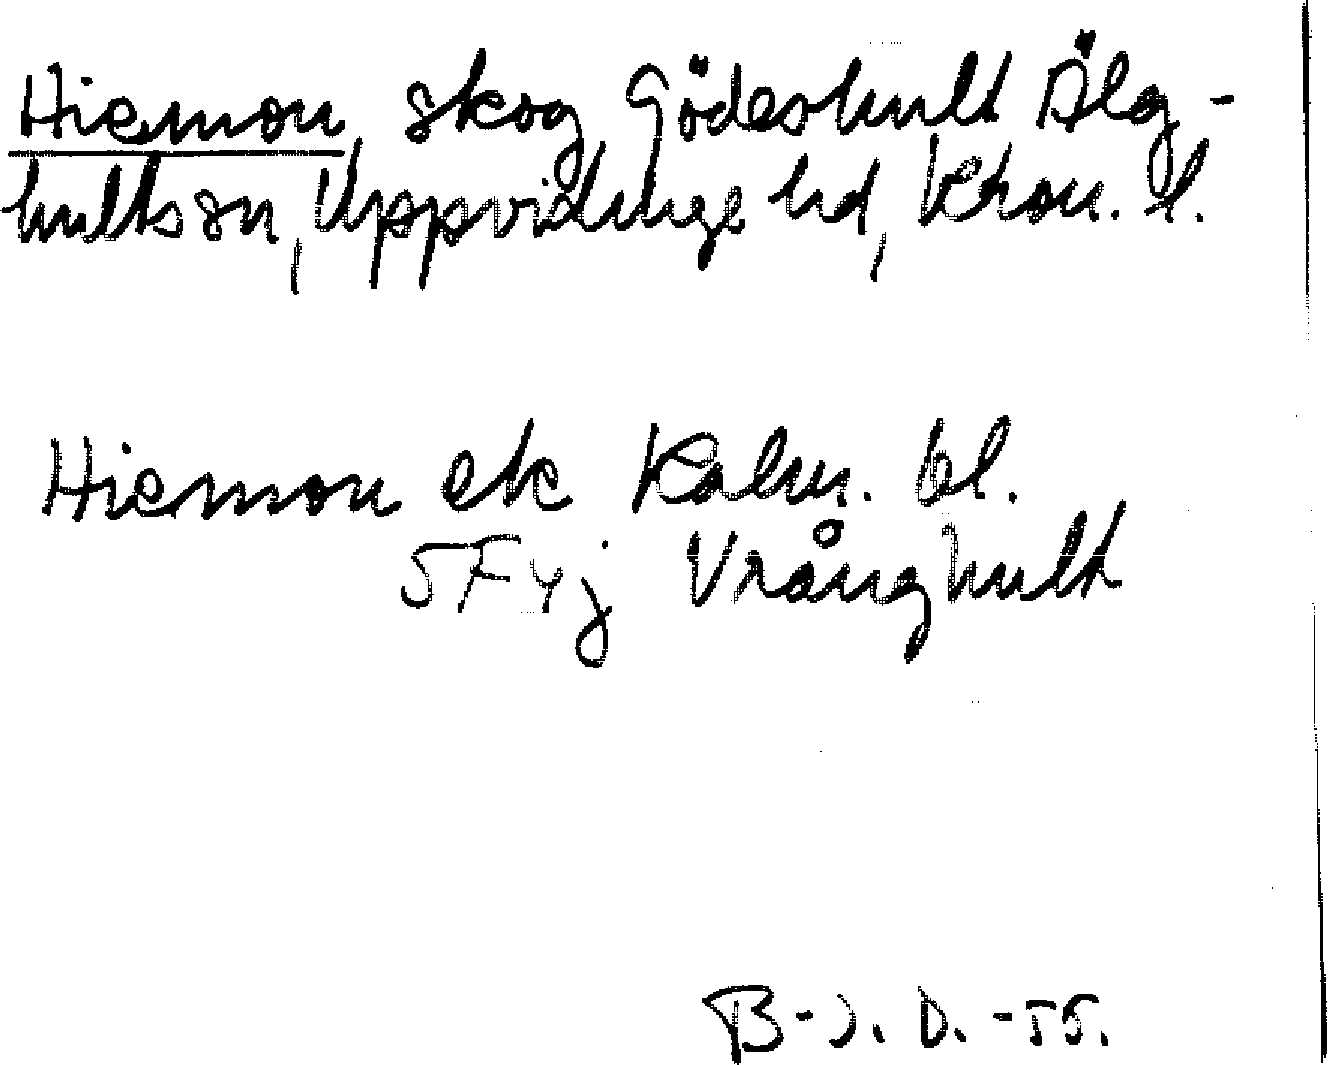 Hiemon skog Gödeshult Älg-
hults sn, Uppvidinge hd, Kron. l.
Hiemon ek Kalm. bl.
5F4j Vrånghult
B-J. D. -55.